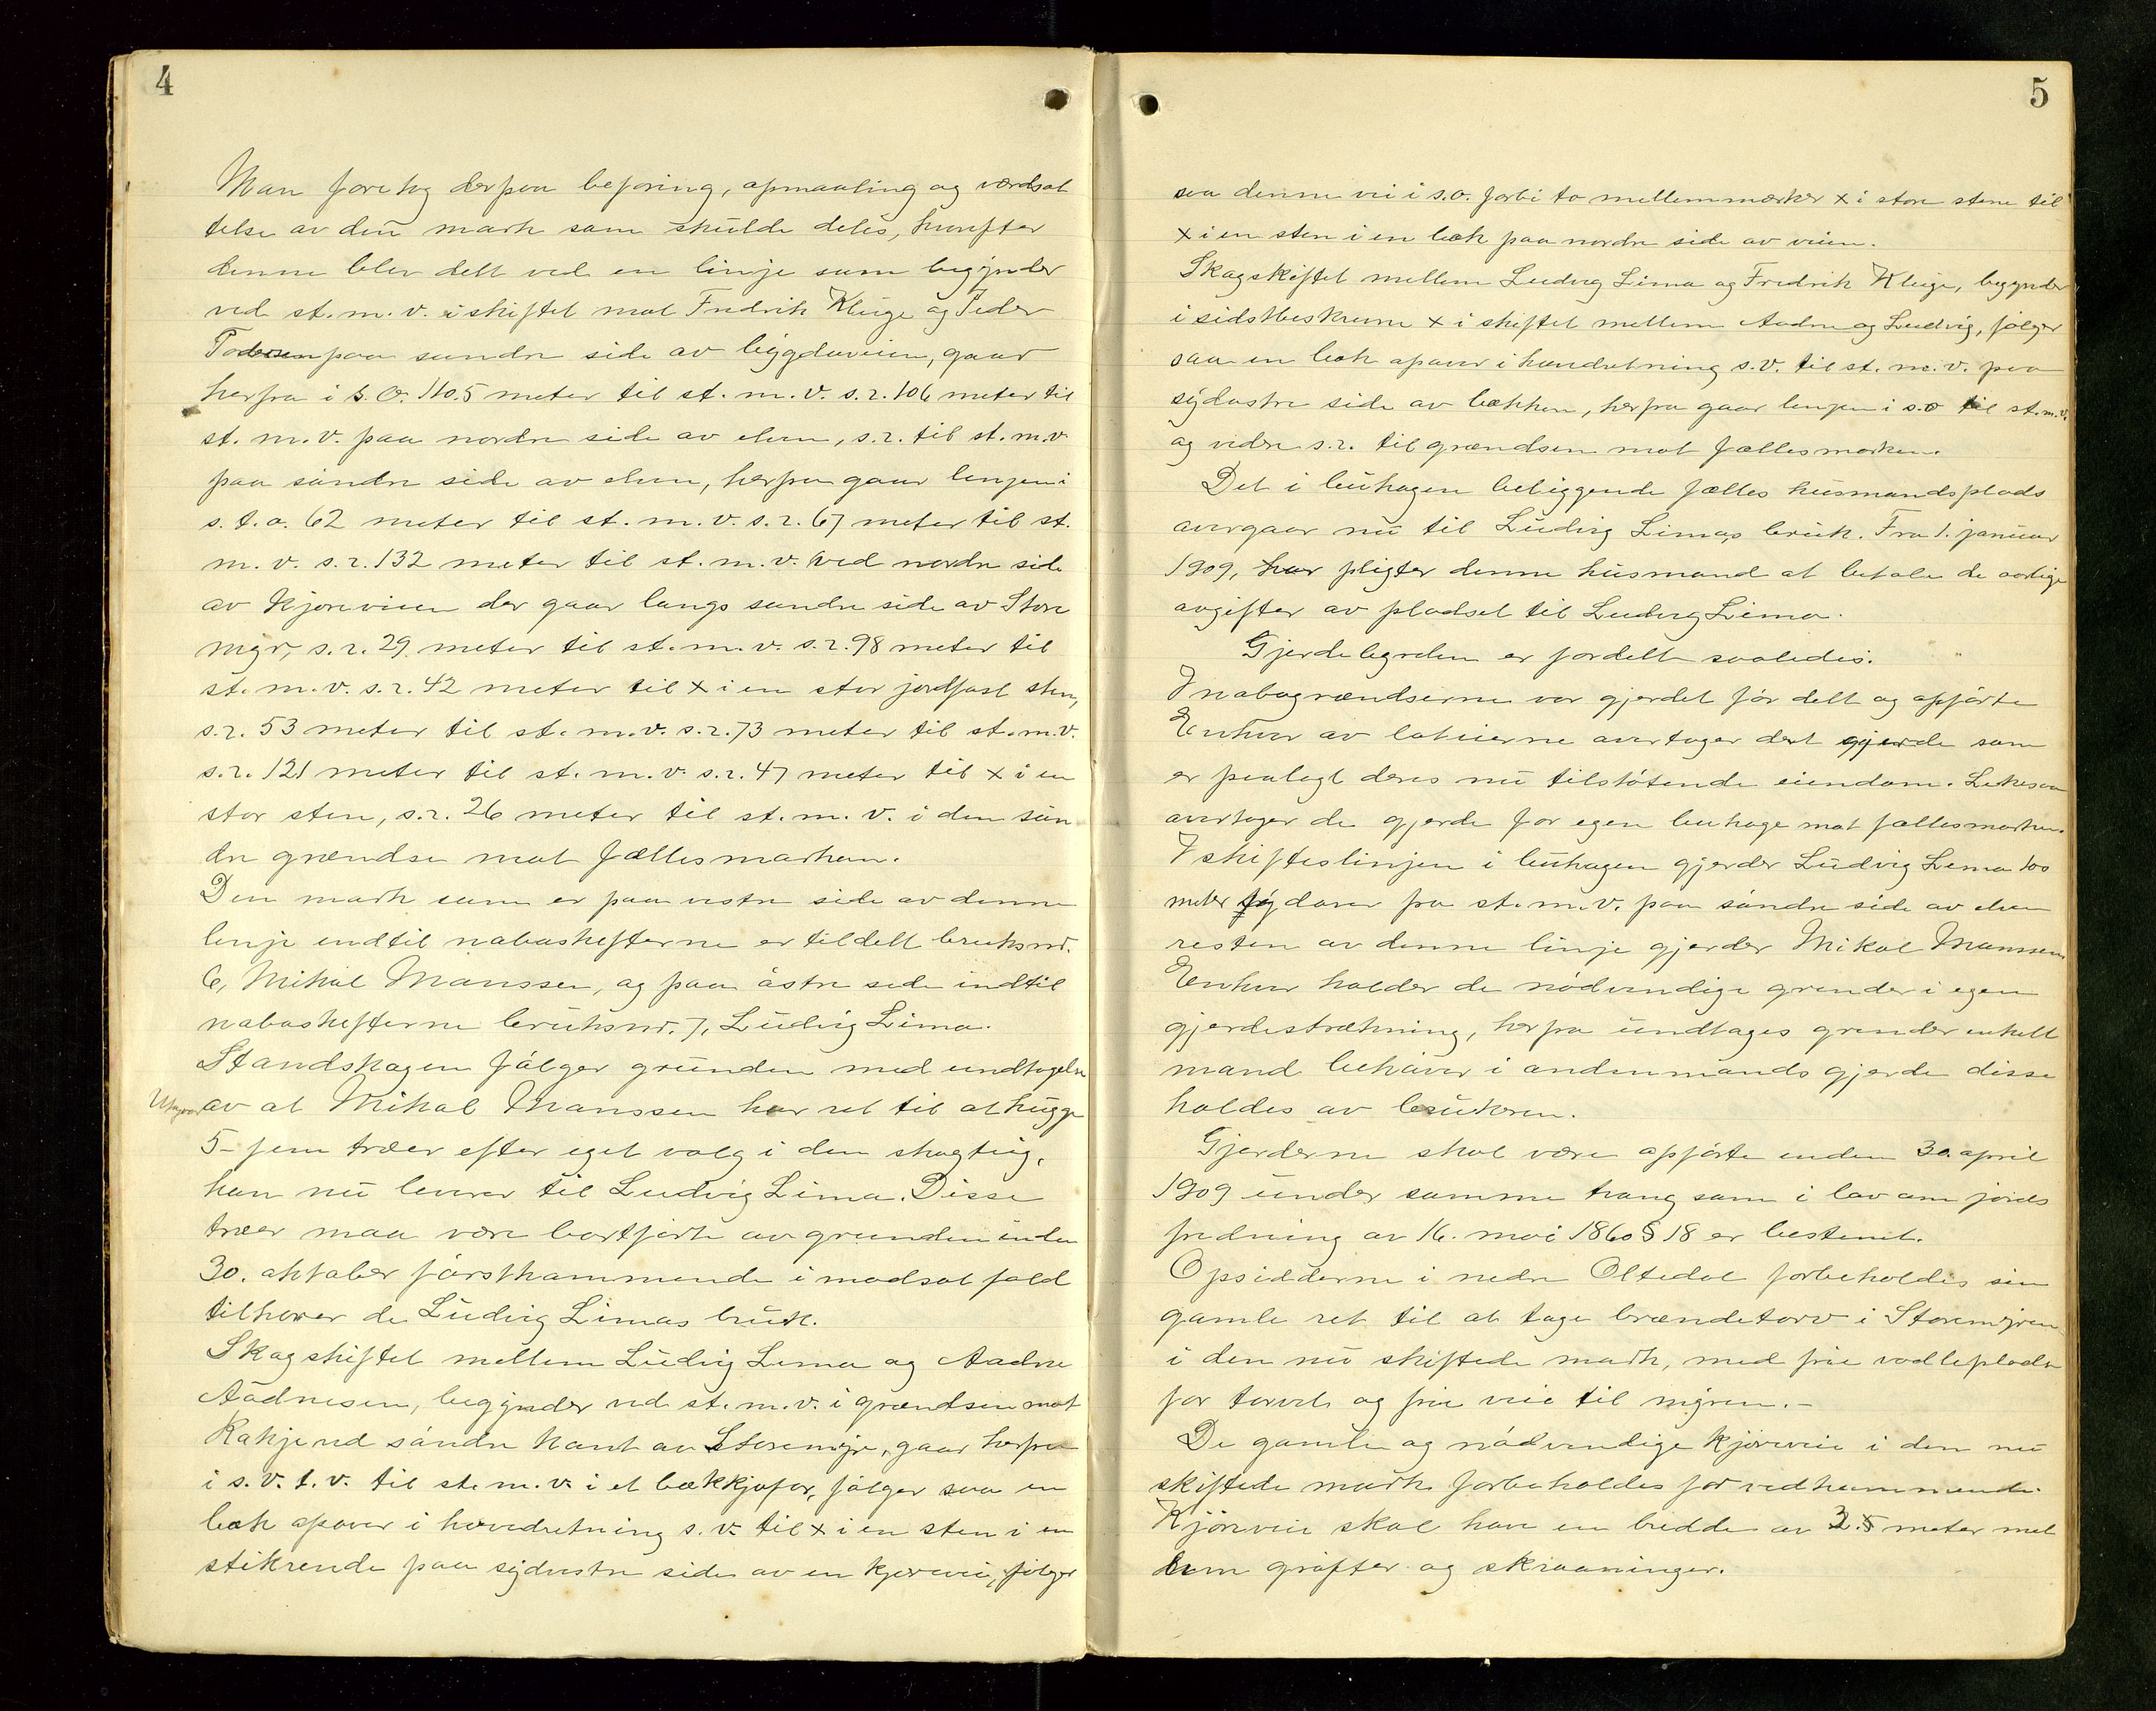 4
Man foretog derpaa befaring, opmaaling og værdsæt
telse av den mark som skulde deles, hvorefter
denne blev delt ved en linje som begynder
ved st. m. v. i skiftet mot Fredrik Kluge og Peder
Pedersen paa søndre side av bygdaveien, gaar
herfra i s. o. 110.5 meter til st. m. v. s. r. 106 meter til
st. m. v. paa nordre side av elven, s. r. til st. m. v.
paa søndre side av elven, herfra gaar linjen i
s. t. o. 62 meter til st. m. v. s. r. 67 meter til st.
m. v. s. r. 132 meter til st. m. v. ved nordre side
av kjøreveien der gaar langs søndre side av Store
myr, s. r. 29 meter til st. m. v. s. r. 98 meter til
st. m. v. s. r. 42 meter til x i en stor jordfast sten,
s. r. 53 meter til st. m. v. s. r. 73 meter til st. m. v.
s. r. 121 meter til st. m. v. s. r. 47 meter til x i en
stor sten, s. r. 26 meter til st. m. v. i den søn
dre grændse mot fællesmarken.
Den mark som er paa vestre side av denne
linje indtil naboskifterne er tildelt bruksnr.
6, Mikal Manssen, og paa østre side indtil
naboskifterne bruksnr. 7, Ludvig Lima.
Standskogen følger grunden med undtagelse
av at Mikal Manssen har ret til at hugge
5 - fem træer efter eget valg i den skogteig,
han nu leverer til Ludvig Lima. Disse
træer maa være bortførte av grunden inden
30. oktober førstkommende i modsat fald
tilhører de Ludvig Limas bruk.
Skogskiftet mellem Ludvig Lima og Aadne
Aadnesen, begynder ved st. m. v. i grændsen mot
Rakje ved søndre kant av Storemyr, gaar herfra
i s. v. t. v. til st. m. v. i et bækkjofar, følger saa en
bæk opover i hovedretning s. v. til x i en sten i en
stikrende paa sydvestre side av en kjørevei, følger
5
saa denne vei i s. o. forbi to mellemmærker x i store stene til
x i en sten i en bæk paa nordre side av veien.
Skogskiftet mellem Ludvig Lima og Fredrik Kluge, begynder
i sidstbeskrevne x i skiftet mellem Aadne og Ludvig, følger
saa en bæk opover i hovedretning s. v. til st. m. v. paa
sydøstre side av bækken, herfra gaar linjen i s. o til st. m. v.
og videre s. r. til grændsen mot fællesmarken.
Det i buhagen beliggende fælles husmandsplads
overgaar nu til Ludvig Limas bruk. Fra 1. januar
1909, pligter denne husmand at betale de aarlige
avgifter av pladset til Ludvig Lima.
Gjerdebyrden er fordelt saaledes.
I nabogrændserne var gjerdet før delt og opført
Enhver av loteierne overtager det gjerde som
er paalagt deres nu tilstøtende eiendom. Likesaa
overtager de gjerde for egen buhage mot fællesmarken.
I skifteslinjen i buhagen gjerder Ludvig Lima 100
meter sydover fra st. m. v. paa søndre side av elven
resten av denne linje gjerder Mikal Manssen
Enhver holder de nødvendige grinder i egen
gjerdestrækning, herfra undtages grinder enkelt
mand behøver i andenmands gjerde disse
holdes av brukeren.
Gjerderne skal være opførte inden 30. april
1909 under samme tvang som i lov om jords
fredning av 16. mai 1860 § 18 er bestemt.
Opsidderne i nedre Oltedal forbeholdes sin
gamle ret til at tage brændetorv i Storemyren
i den nu skiftede mark, med frie vodleplads
for torvet og frie veie til myren. -
De gamle og nødvendige kjøreveie i den nu
skiftede mark forbeholdes for vedkommende.
Kjøreveie skal have en bredde av 2.5 meter mel
lem grøfter og skraaninger.